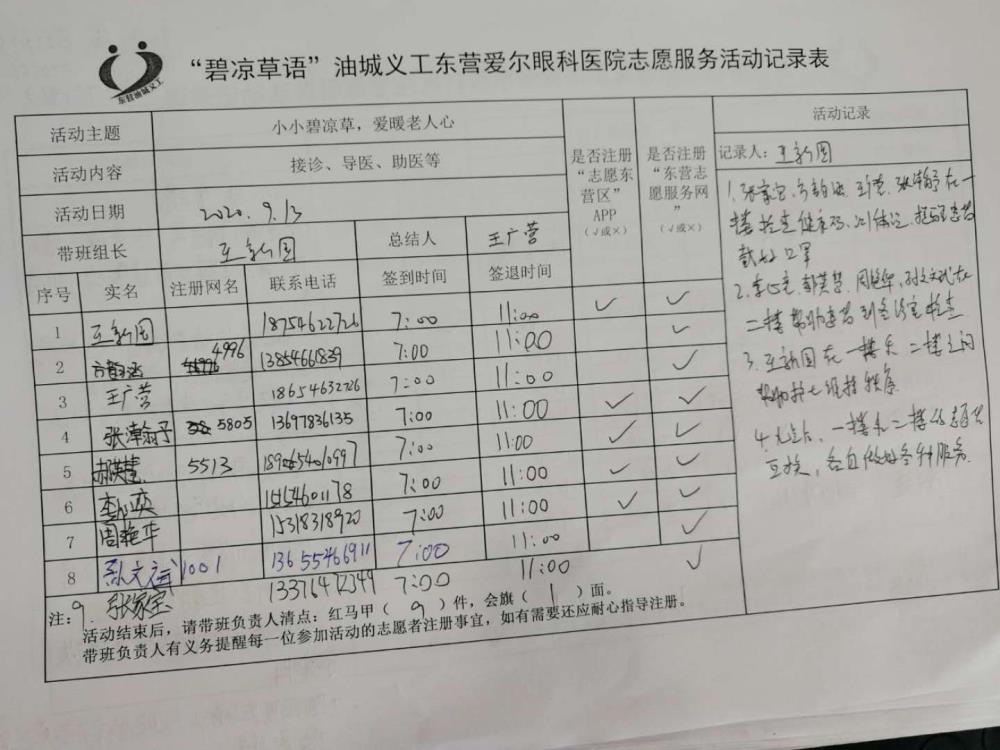 东营油城义工
“碧凉草语”油城义工东营爱尔眼科医院志愿服务活动记录表
活动主题 小小碧凉草，爱暖老人心
活动内容 接诊、导医、助医等
活动日期 2020.9.13
带班组长 王新国 总结人 王广营
是否注册“志愿东营区”APP（√或×）
是否注册“东营志愿服务网”（√或×）
序号 实名 注册网名 联系电话 签到时间 签退时间
1 王新国 18754622726 7:00 11:00 ✓ ✓
2 4996 13854661839 7:00 11:00 ✓
3 王广营 18654632226 7:00 11:00 ✓
4 张瀚予 5805 13697836135 7:00 11:00 ✓ ✓
5 5513 7:00 11:00 ✓ ✓
6 7:00 11:00 ✓ ✓
7 周艳华 15318318920 7:00 11:00 ✓ ✓
8 1001 13655466911 7:00 11:00 ✓
9. 张家宝 7:00 11:00 ✓
注：
活动结束后，请带班负责人清点：红马甲（9）件，会旗（1）面。
带班负责人有义务提醒每一位参加活动的志愿者注册事宜，如有需要还应耐心指导注册。
活动记录
记录人：王新国
1. 张家宝、在一
楼检查健康码、测体温、提醒患者
戴好口罩
2. 周艳华、在
二楼帮助患者到各诊室检查
3. 王新国在一楼和二楼之间
维持秩序
4. 一楼和二楼的志愿者
互换，各自做好各种服务.